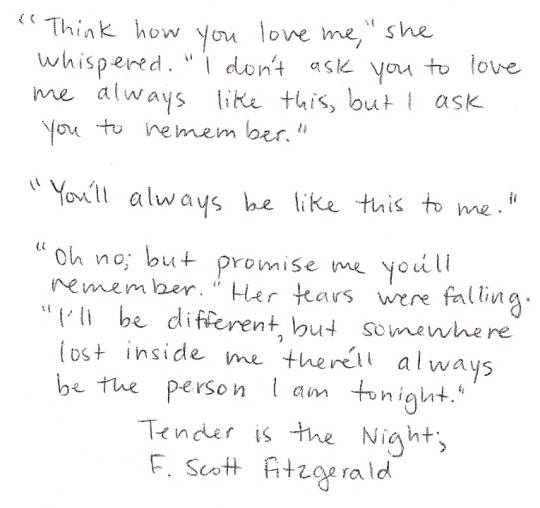 "Think how you love me," she
whispered. "I don't ask you to love
me always like this, but I ask
you to remember."
"You'll always be like this to me."
"Oh no; but promise me you'll
remember." Her tears were falling.
"I'll be different, but somewhere
lost inside me there'll always
be the person I am tonight."
Tender is the Night;
F. Scott Fitzgerald